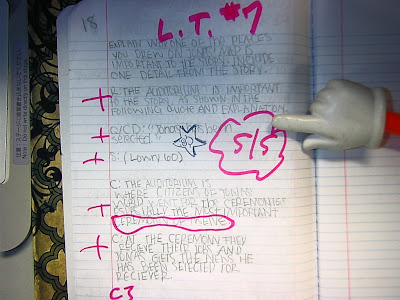 18
L.T. #7
EXPLAIN WHY ONE OF THE PLACES
YOU DREW ON JONAS' MAP IS
IMPORTANT TO THE STORY. INCLUDE
ONE DETAIL FROM THE STORY.
R: THE AUDITORIUM IS IMPORTANT
TO THE STORY AS SHOWN IN THE
FOLLOWING QUOTE AND EXPLANATION.
Q/CD: "Jonas has been
selected."
S: (Lowry 60)
5/5
C: THE AUDITORIUM IS
WHERE CITIZENS OF JONAS'
WORLD WENT FOR THE CEREMONIES
USUALLY THE MOST IMPORTANT
CEREMONY OF TWELVE.
C: AT THE CEREMONY THEY
RECEIVE THEIR JOBS AND
JONAS GETS THE NEWS HE
HAS BEEN SELECTED FOR
RECIEVER.
C3